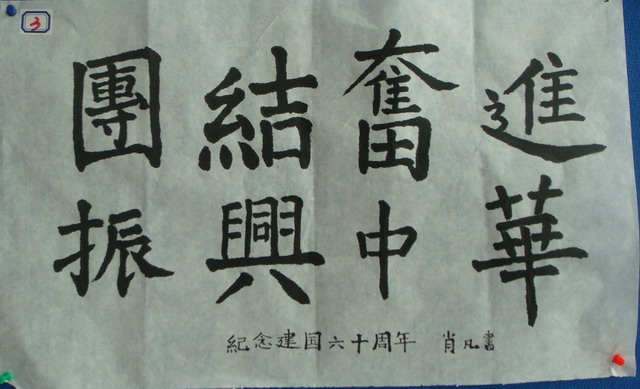 3
團結奮進
振興中華
紀念建国六十周年 肖凡書